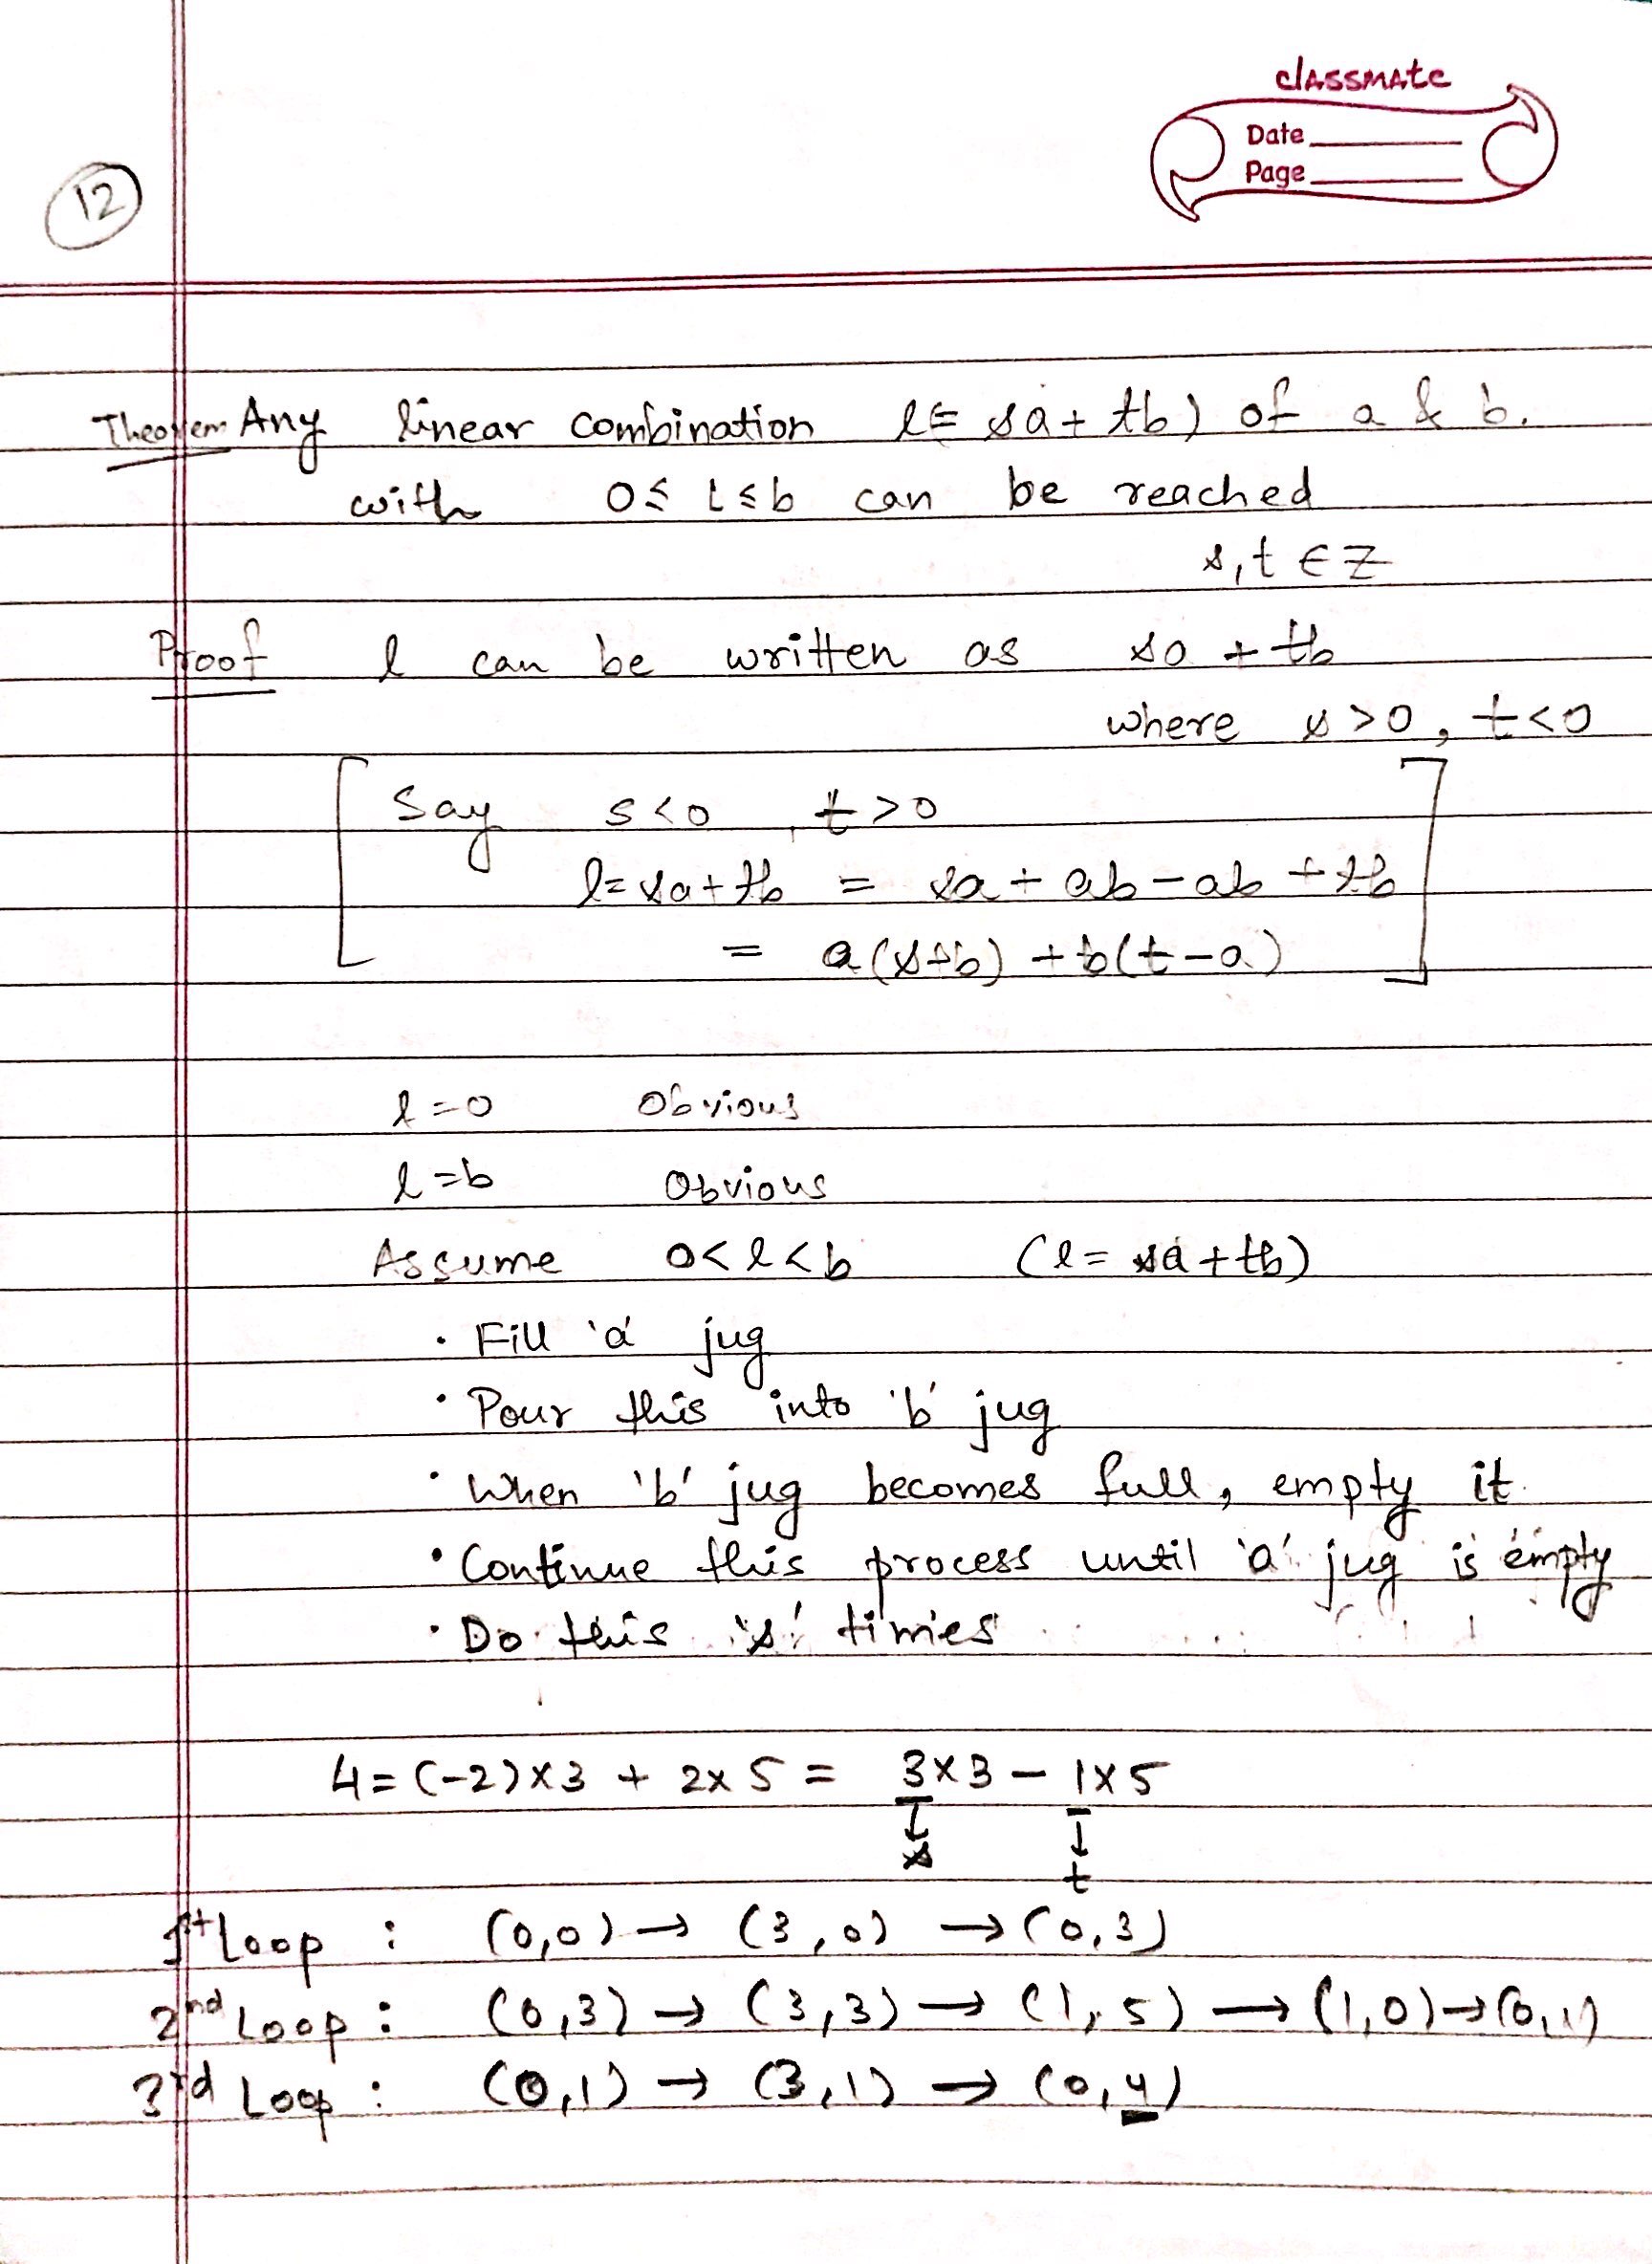 classmate
Date
Page
12
Theorem Any linear combination l(= sa + tb) of a & b.
with 0 ≤ l ≤ b can be reached
s, t ∈ Z
Proof l can be written as sa + tb
where s > 0, t < 0
Say s < 0, t > 0
l = sa + tb = sa + ab - ab + tb
= a(s+b) + b(t-a)
l = 0 Obvious
l = b Obvious
Assume 0 < l < b (l = sa + tb)
• Fill 'a' jug
• Pour this into 'b' jug
• When 'b' jug becomes full, empty it.
• Continue this process until 'a' jug is empty
• Do this 's' times
4 = (-2)×3 + 2×5 = 3×3 - 1×5
↓ ↓
s t
1st Loop : (0,0) → (3,0) → (0,3)
2nd Loop : (0,3) → (3,3) → (1,5) → (1,0) → (0,1)
3rd Loop : (0,1) → (3,1) → (0,4)